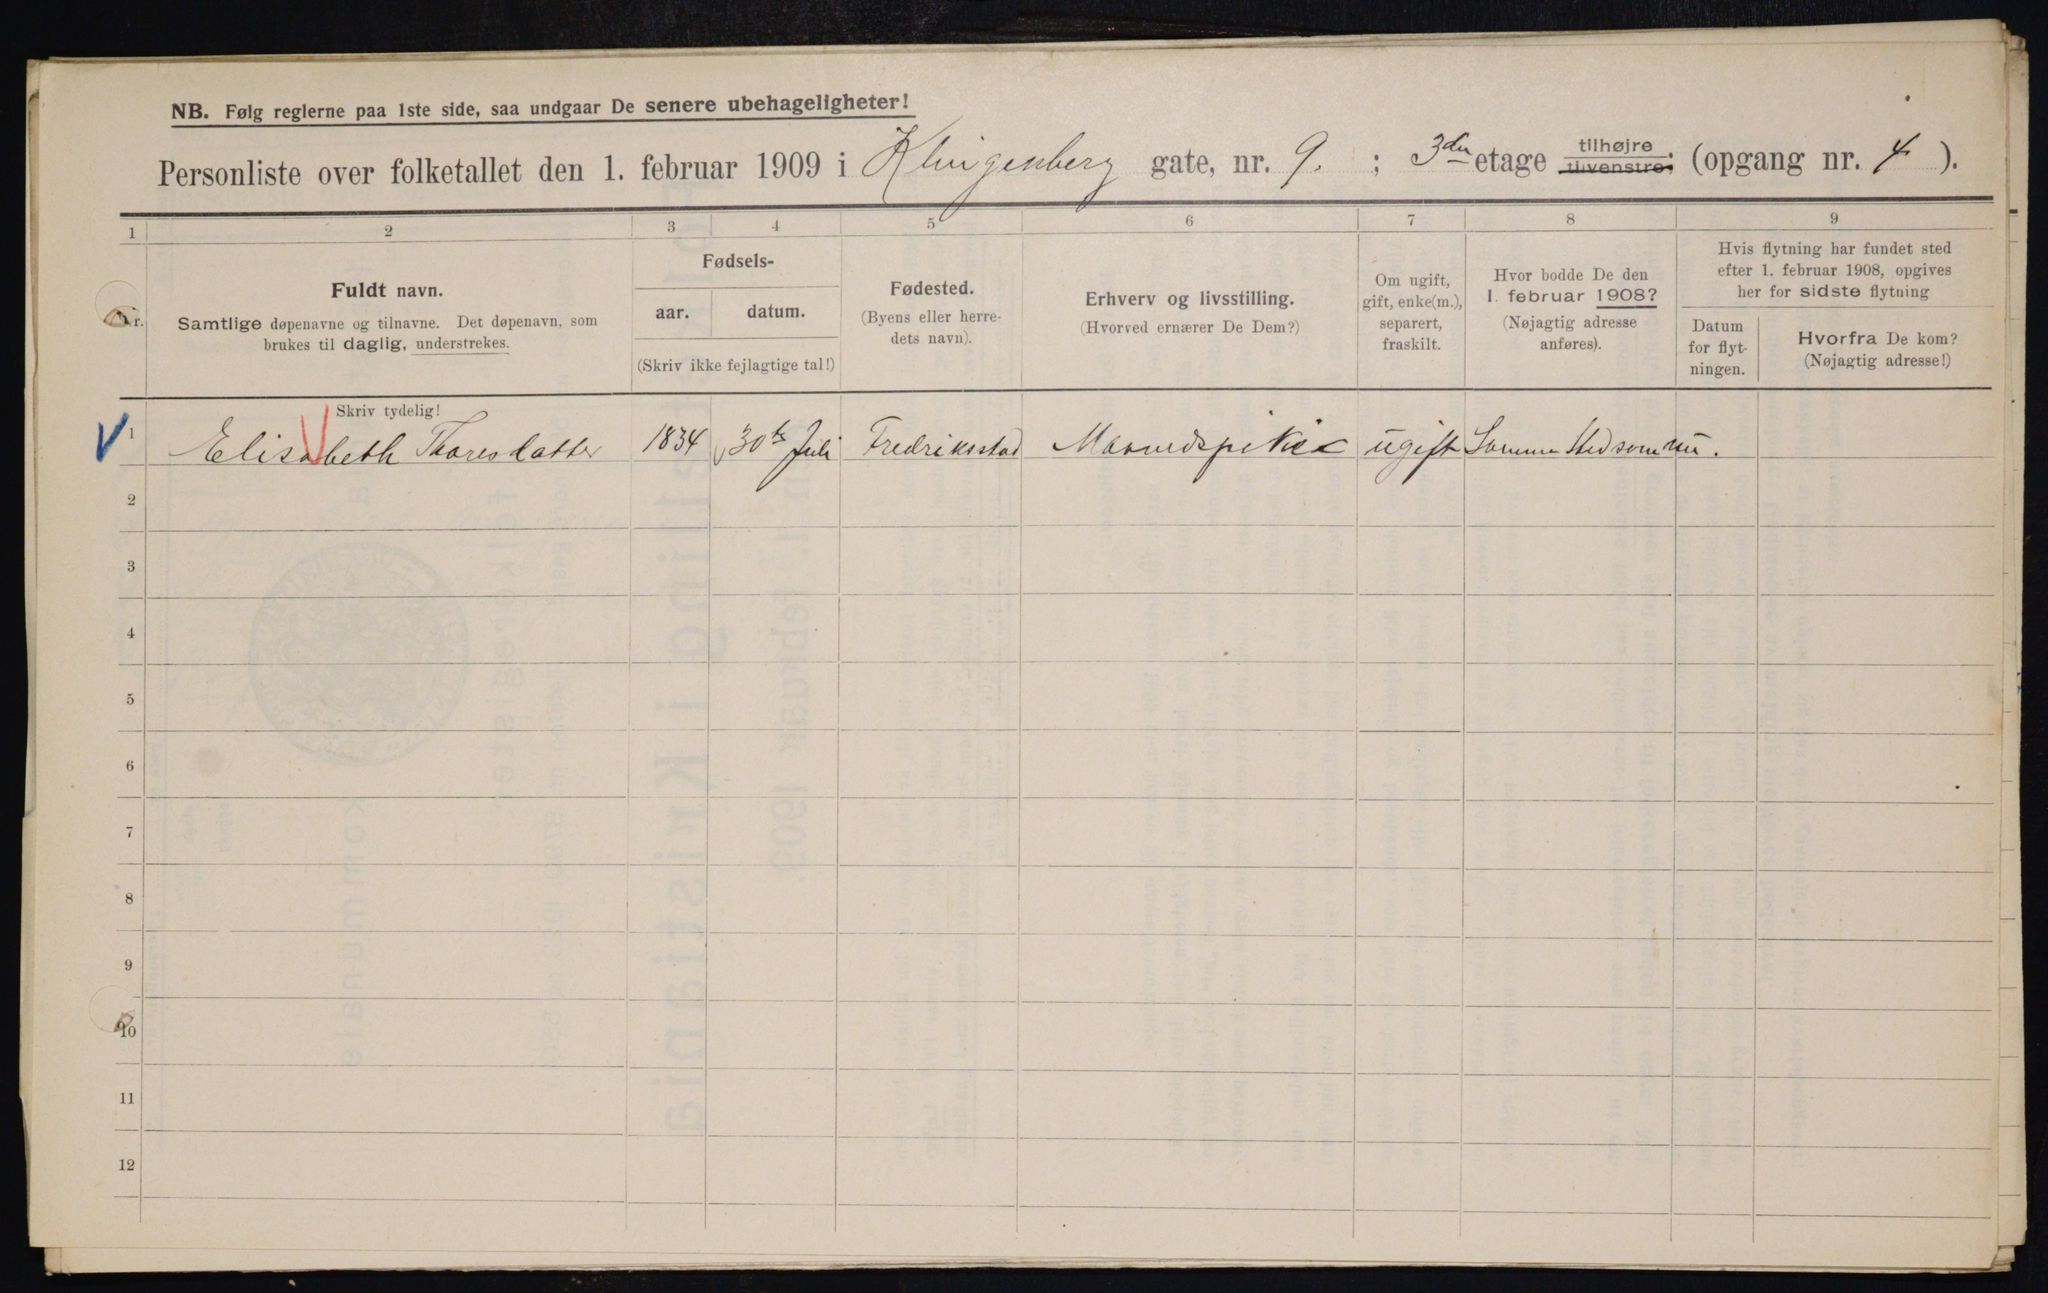 NB. Følg reglerne paa 1ste side, saa undgaar De senere ubehageligheter!
Personliste over folketallet den 1. februar 1909 i Klingenberg gate, nr. 9. ; 3die etage tilhøjre tilvenstre; (opgang nr. 4 ).
1 2 3 4 5 6 7 8 9
Nr.
Fuldt navn.
Samtlige døpenavne og tilnavne. Det døpenavn, som
brukes til daglig, understrekes.
Fødsels-
aar. datum.
(Skriv ikke fejlagtige tal!)
Fødested.
(Byens eller herre-
dets navn).
Erhverv og livsstilling.
(Hvorved ernærer De Dem?)
Om ugift,
gift, enke(m.),
separert,
fraskilt.
Hvor bodde De den
1. februar 1908?
(Nøjagtig adresse
anføres).
Hvis flytning har fundet sted
efter 1. februar 1908, opgives
her for sidste flytning
Datum
for flyt-
ningen.
Hvorfra De kom?
(Nøjagtig adresse!)
Skriv tydelig!
1 Elisabeth Thoresdatter 1834 30te Juli Fredriksstad ugift Samme Sted som nu.
2
3
4
5
6
7
8
9
10
11
12